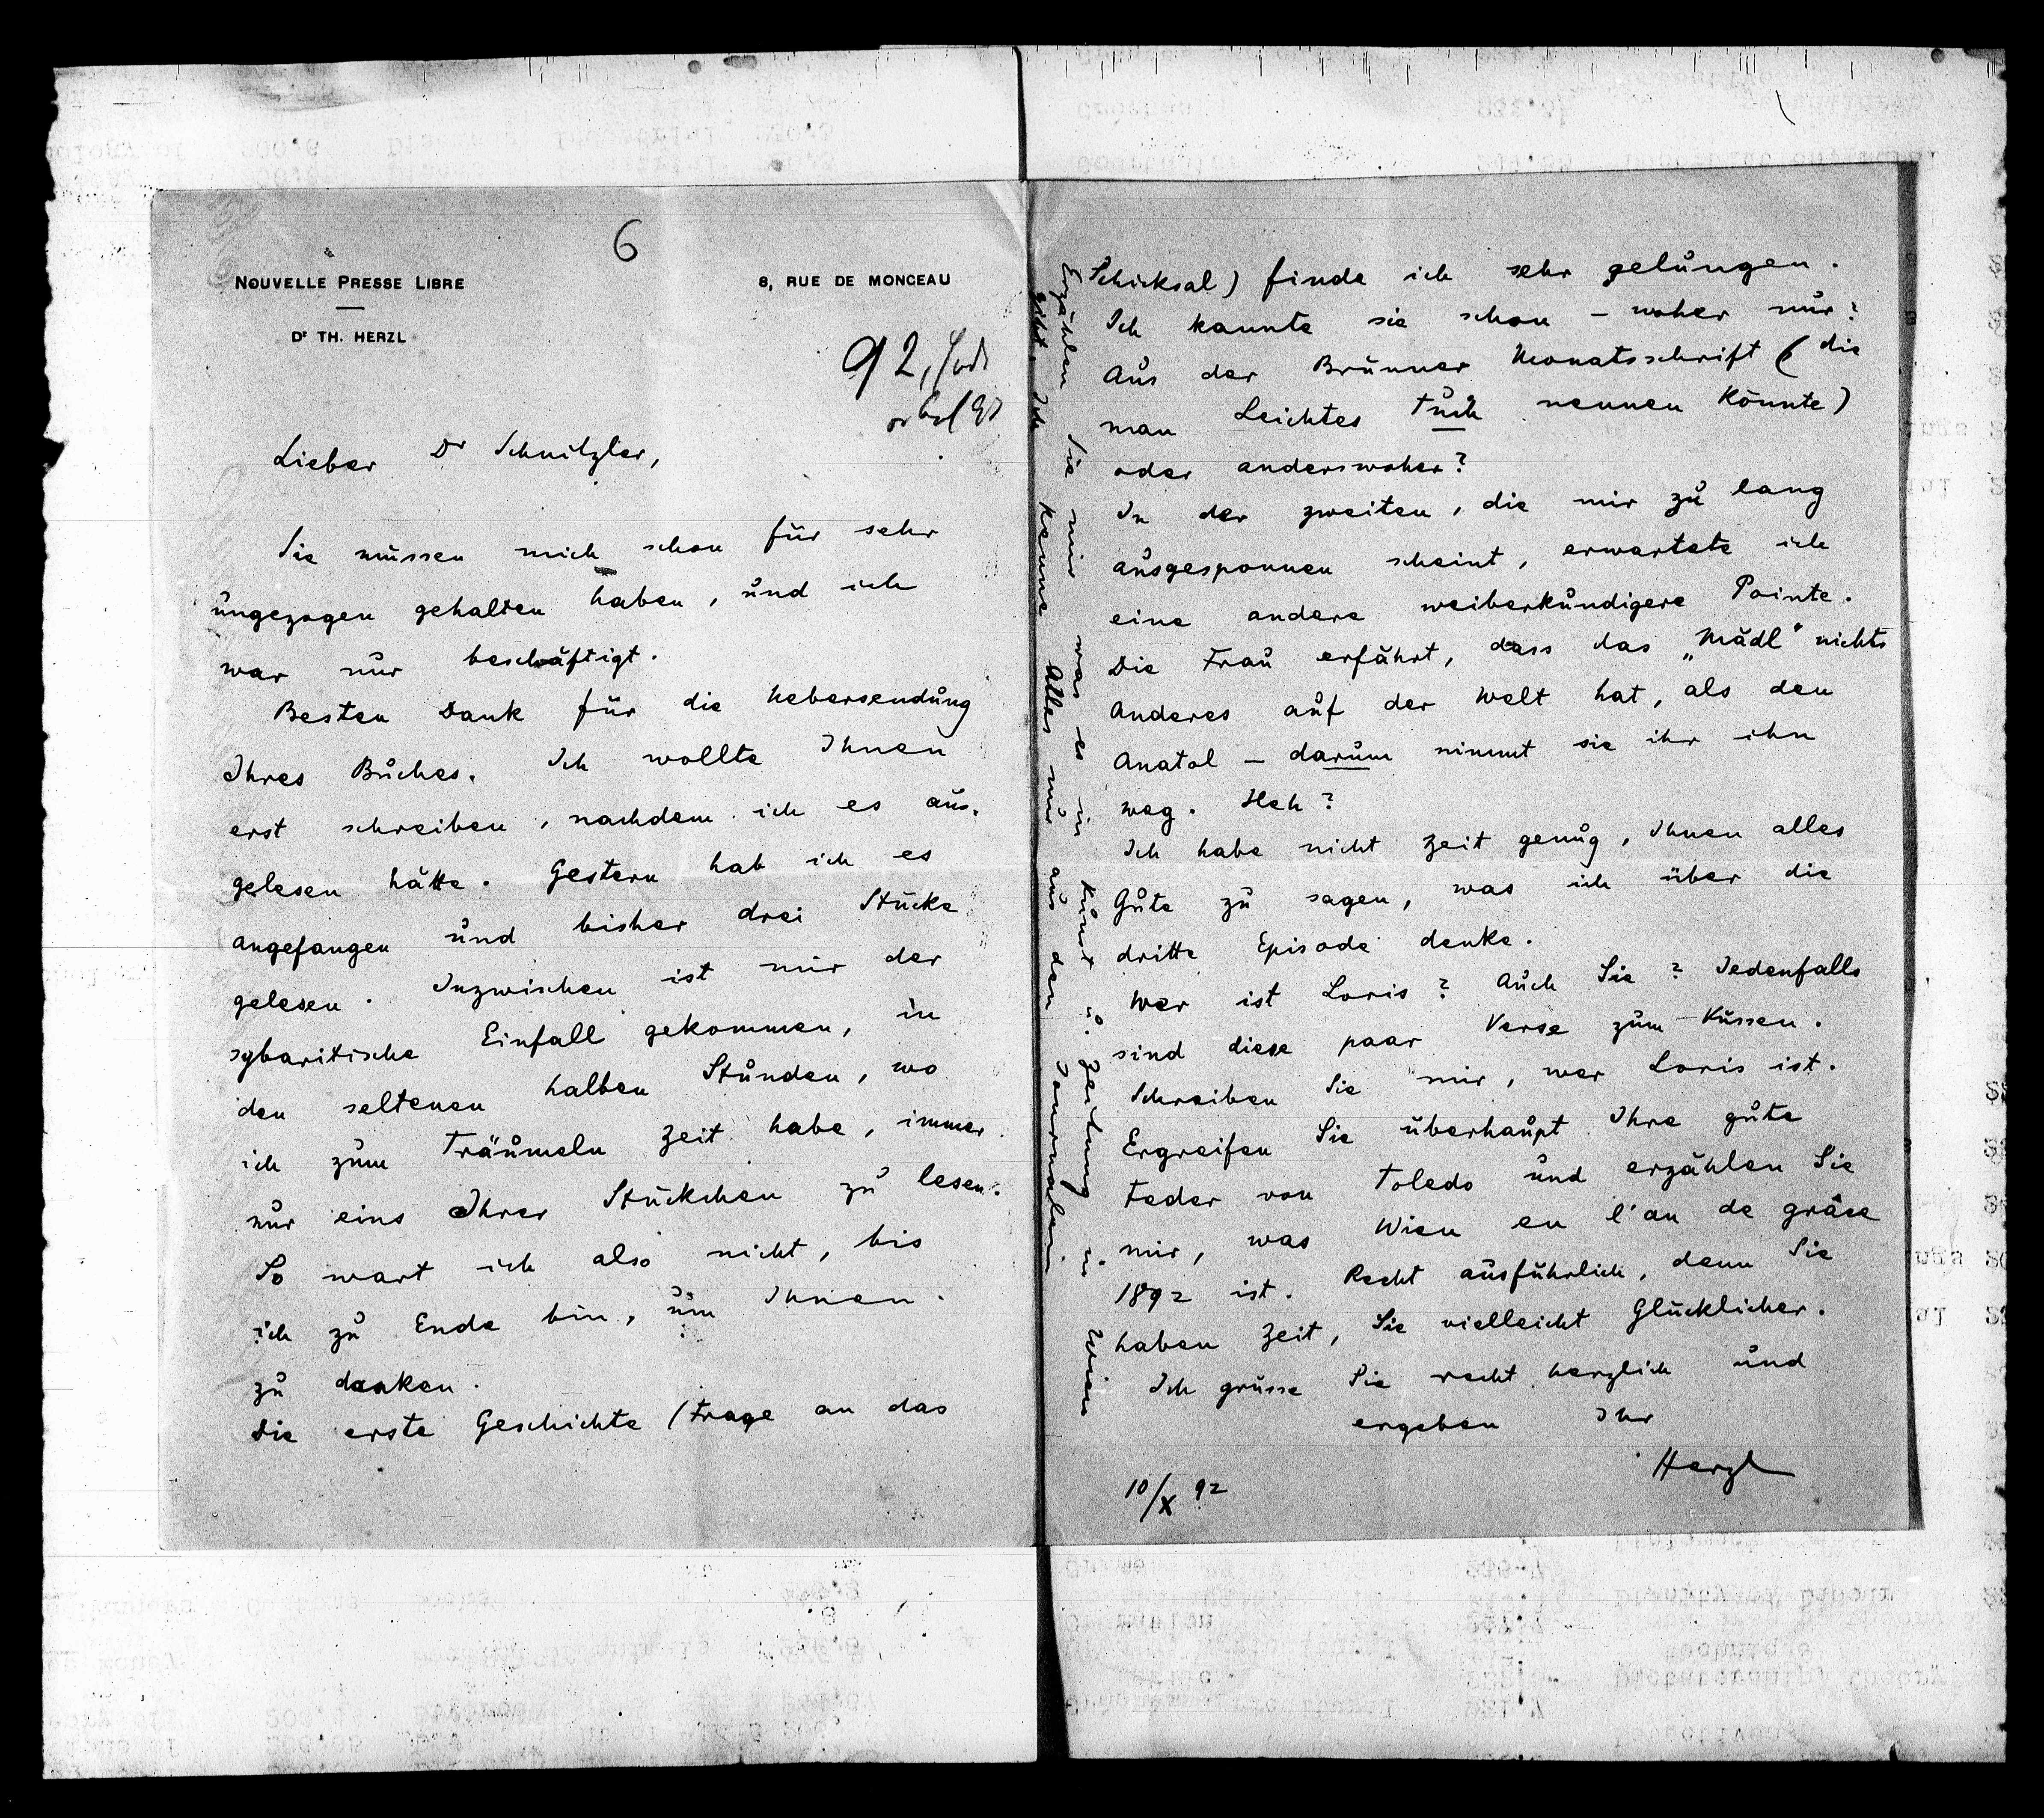 6
NOUVELLE PRESSE LIBRE
8, RUE DE MONCEAU
Dr TH. HERZL
92,
Lieber Dr Schnitzler,
Sie müssen mich schon für sehr
ungezogen gehalten haben, und ich
war nur beschäftigt.
Besten Dank für die Uebersendung
Ihres Buches. Ich wollte Ihnen
erst schreiben, nachdem ich es aus-
gelesen hätte. Gestern hab ich es
angefangen und bisher drei Stücke
gelesen. Inzwischen ist mir der
sybaritische Einfall gekommen, in
den seltenen halben Stunden, wo
ich zum Träumeln Zeit habe, immer
nur eins Ihrer Stückchen zu lesen.
So wart ich also nicht, bis
ich zu Ende bin, um Ihnen
zu danken.
Die erste Geschichte (Frage an das
Schicksal) finde ich sehr gelungen.
Ich kannte sie schon – woher nur?
Aus der Brünner Monatsschrift (die
man Leichtes Tuch nennen könnte)
oder anderswoher?
In der zweiten, die mir zu lang
ausgesponnen scheint, erwartete ich
eine andere weiberkundigere Pointe.
Die Frau erfährt, dass das „Mädl" nichts
Anderes auf der Welt hat, als den
Anatol – darum nimmt sie ihr ihn
weg. Heh?
Ich habe nicht Zeit genug, Ihnen alles
Gute zu sagen, was ich über die
dritte Episode denke.
Wer ist Loris? Auch Sie? Jedenfalls
sind diese paar Verse zum Küssen.
Schreiben Sie mir, wer Loris ist.
Ergreifen Sie überhaupt Ihre gute
Feder von Toledo und erzählen Sie
mir, was Wien en l'an de grâce
1892 ist. Recht ausführlich, denn Sie
haben Zeit, Sie vielleicht Glücklicher.
Ich grüsse Sie recht herzlich und
ergeben Ihr
Herzl
10/X 92
Erzählen Sie mir was es in Kunst u. Zeitung in Wien
gibt. Ich kenne Alles nur aus den Journalen